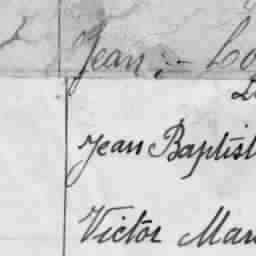 Jean
Jean Baptist
Victor Mar